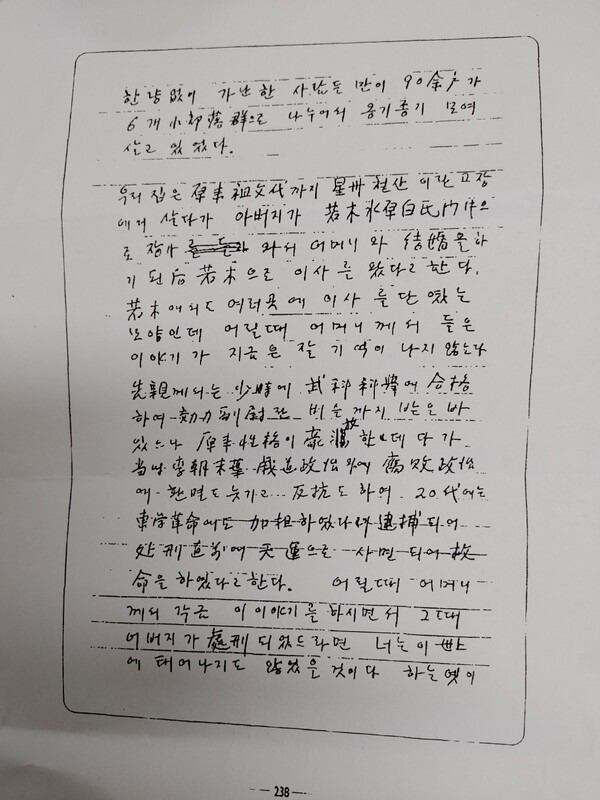 한량없이 가난한 사람들 만이 90余戶가
6개 小部落群으로 나누어서 옹기종기 모여
살고 있었다.
우리 집은 原来 祖父代까지 星州 철산 이란 고장
에서 살다가 아버지가 若木水原白氏門中으
로 장가 와서 어머니 와 結婚을하
기 된后 若木으로 이사를 왔다고 한다.
若木에서도 여러곳에 이사를 단 였는
모양인데 어릴때 어머니께서 들은
이야기가 지금은 잘 기억이 나지 않는다
先親께서는 少時에 武科科擧에 合格
하여 副尉란 벼슬까지 받은바
있으나 原来性格이 豪放한데다가
当時 李朝末葉 勢道政治와 腐敗政治
에 환멸도 느끼고 反抗도 하여 20代에는
東学革命에도 加担하였다가 逮捕되어
处刑直前에 天運으로 사면되어 救
命을 하였다고한다. 어릴때 어머니
께서 각금 이 이야기를 하시면서 그때
아버지가 處刑되었드라면 너는 이 世上
에 태어나지도 않았을것이다 하는 옛이
238